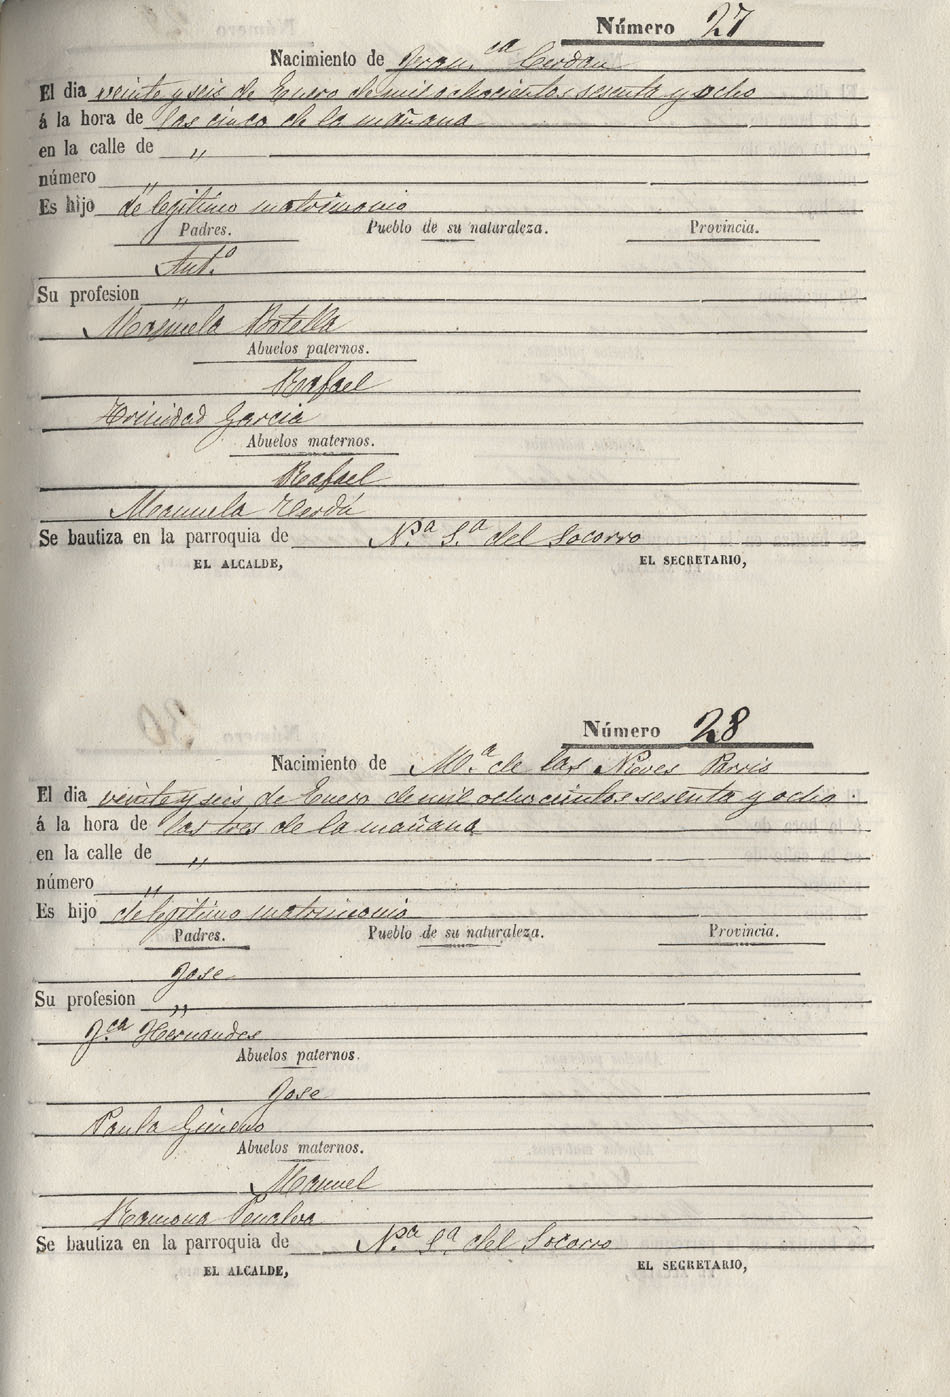 Número 27
Nacimiento de Fran.ca Cerdan
El dia veinte y seis de Enero de mil ochocientos sesenta y ocho
á la hora de las cinco de la mañana
en la calle de "
número "
Es hijo de legitimo matrimonio
Padres. Pueblo de su naturaleza. Provincia.
Ant.o
Su profesion "
Manuela Botella
Abuelos paternos.
Rafael
Trinidad Garcia
Abuelos maternos.
Rafael
Manuela Verdú
Se bautiza en la parroquia de N.a S.a del Socorro
EL ALCALDE, EL SECRETARIO,
Número 28
Nacimiento de M.a de las Nieves Parris
El dia veinte y seis de Enero de mil ochocientos sesenta y ocho.
á la hora de las tres de la mañana
en la calle de "
número "
Es hijo de legitimo matrimonio
Padres. Pueblo de su naturaleza. Provincia.
Jose
Su profesion "
F.ca Hernandes
Abuelos paternos.
Jose
Paula Gimeno
Abuelos maternos.
Manuel
Ramona Penalva
Se bautiza en la parroquia de N.a S.a del Socorro
EL ALCALDE, EL SECRETARIO,